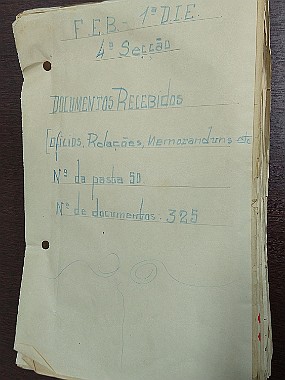 F.E.B. - 1ª D.I.E.
4ª Secção
DOCUMENTOS RECEBIDOS
(Ofícios, Relações, Memoranduns etc
Nº da pasta 90
Nº de documentos: 325